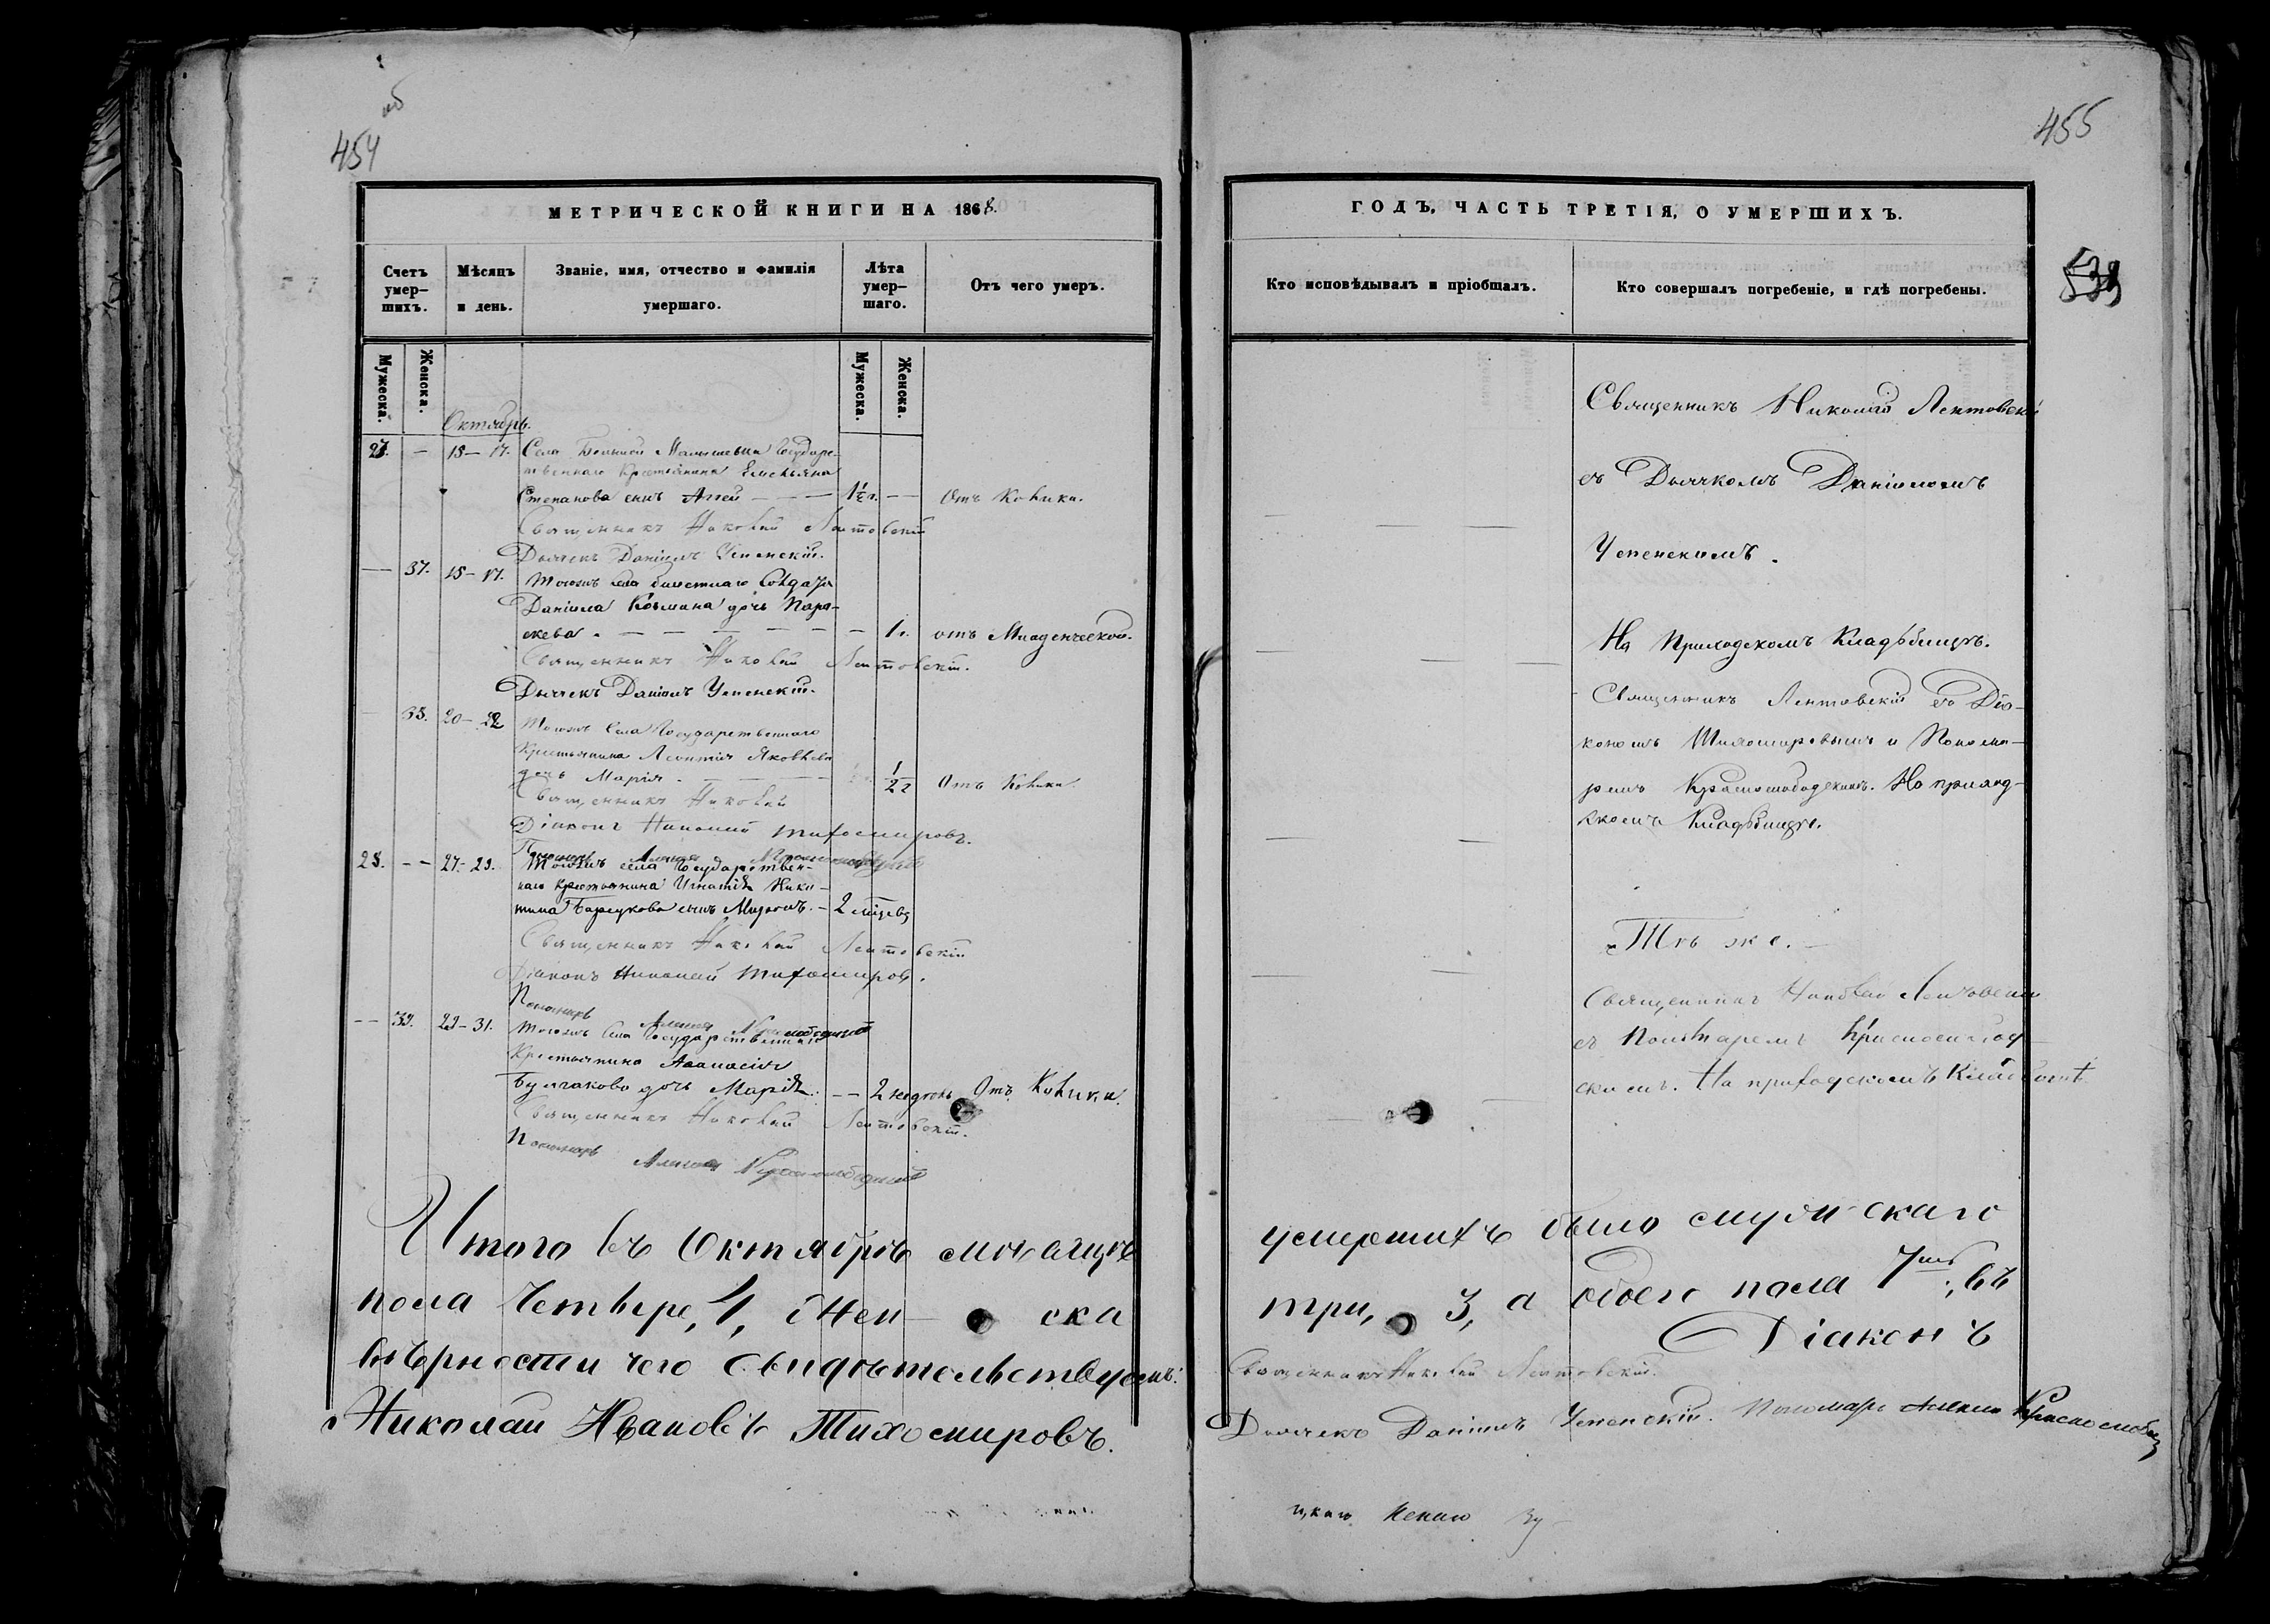 454
об
МЕТРИЧЕСКОЙ КНИГИ НА 1868.
Счетъ умер-шихъ.
Мѣсяцъ и день.
Званіе, имя, отчество и фамилія умершаго.
Лѣта умер-шаго.
Отъ чего умеръ.
Мужеска.
Женска.
Мужеска.
Женска.
Октябрь.
27. — 15—17. Села Большой Малышевки Государ-
ственнаго Крестьянина Емельяна
Степанова сынъ Аггей — — — 1½ г. — Отъ Колики.
Священникъ Николай Лентовскій
Дьячекъ Даніилъ Успенскій.
— 37. 15—17. Тогожъ села билетнаго Солдата
Даніила Козмина дочь Пара-
скева. — — — — — — 1 г. отъ Младенческой.
Священникъ Николай Лентовскій.
Дьячекъ Даніилъ Успенскій.
38. 20—22 Тогожъ Села Государственнаго
Крестьянина Леонтія Яковлева
дочь Марія. — — — — ½ г Отъ Колики.
Священникъ Николай
Діаконъ Николай Тихомировъ.
Пономарь Алексѣй Краснослободскій
28. — — 27—29. Тогожъ села Государствен-
наго Крестьянина Игнатія Ники-
тина сынъ — 2 мѣсяца
Священникъ Николай Лентовскій
Діаконъ Николай Тихомировъ.
Пономарь Алексѣй Краснослободскій
— — 39. 29—31. Тогожъ Села Государственнаго
Крестьянина Аѳанасія
Булгакова дочь Марія. — — 2 недѣль Отъ Колики.
Священникъ Николай Лентовскій.
Пономарь Алексѣй Краснослободскій
Итого въ Октябрѣ мѣсяцѣ
пола четверо, 4, Жен — ска
вѣрности чего свидѣтельствуемъ:
Николай Ивановъ Тихомировъ.
455
ГОДЪ, ЧАСТЬ ТРЕТІЯ, О УМЕРШИХЪ.
Кто исповѣдывалъ и пріобщалъ.
Кто совершалъ погребеніе, и гдѣ погребены.
Священникъ Николай Лентовскій
съ Дьячкомъ Даніиломъ
Успенскимъ.
На Приходскомъ Кладбищѣ.
Священникъ Лентовскій съ Діа-
кономъ Тихомировымъ и Понома-
ремъ Краснослободскимъ. На приход-
скомъ Кладбищѣ.
Тѣ же.
Священникъ Николай Лентовскій
съ Пономаремъ Краснослобод-
скимъ. На приходскомъ Кладбищѣ
умершихъ было мужескаго
три, 3, а обоего пола 7мь; въ
Діаконъ
Священникъ Николай Лентовскій.
Дьячекъ Даніилъ Успенскій. Пономарь Алексѣй Краснослобод